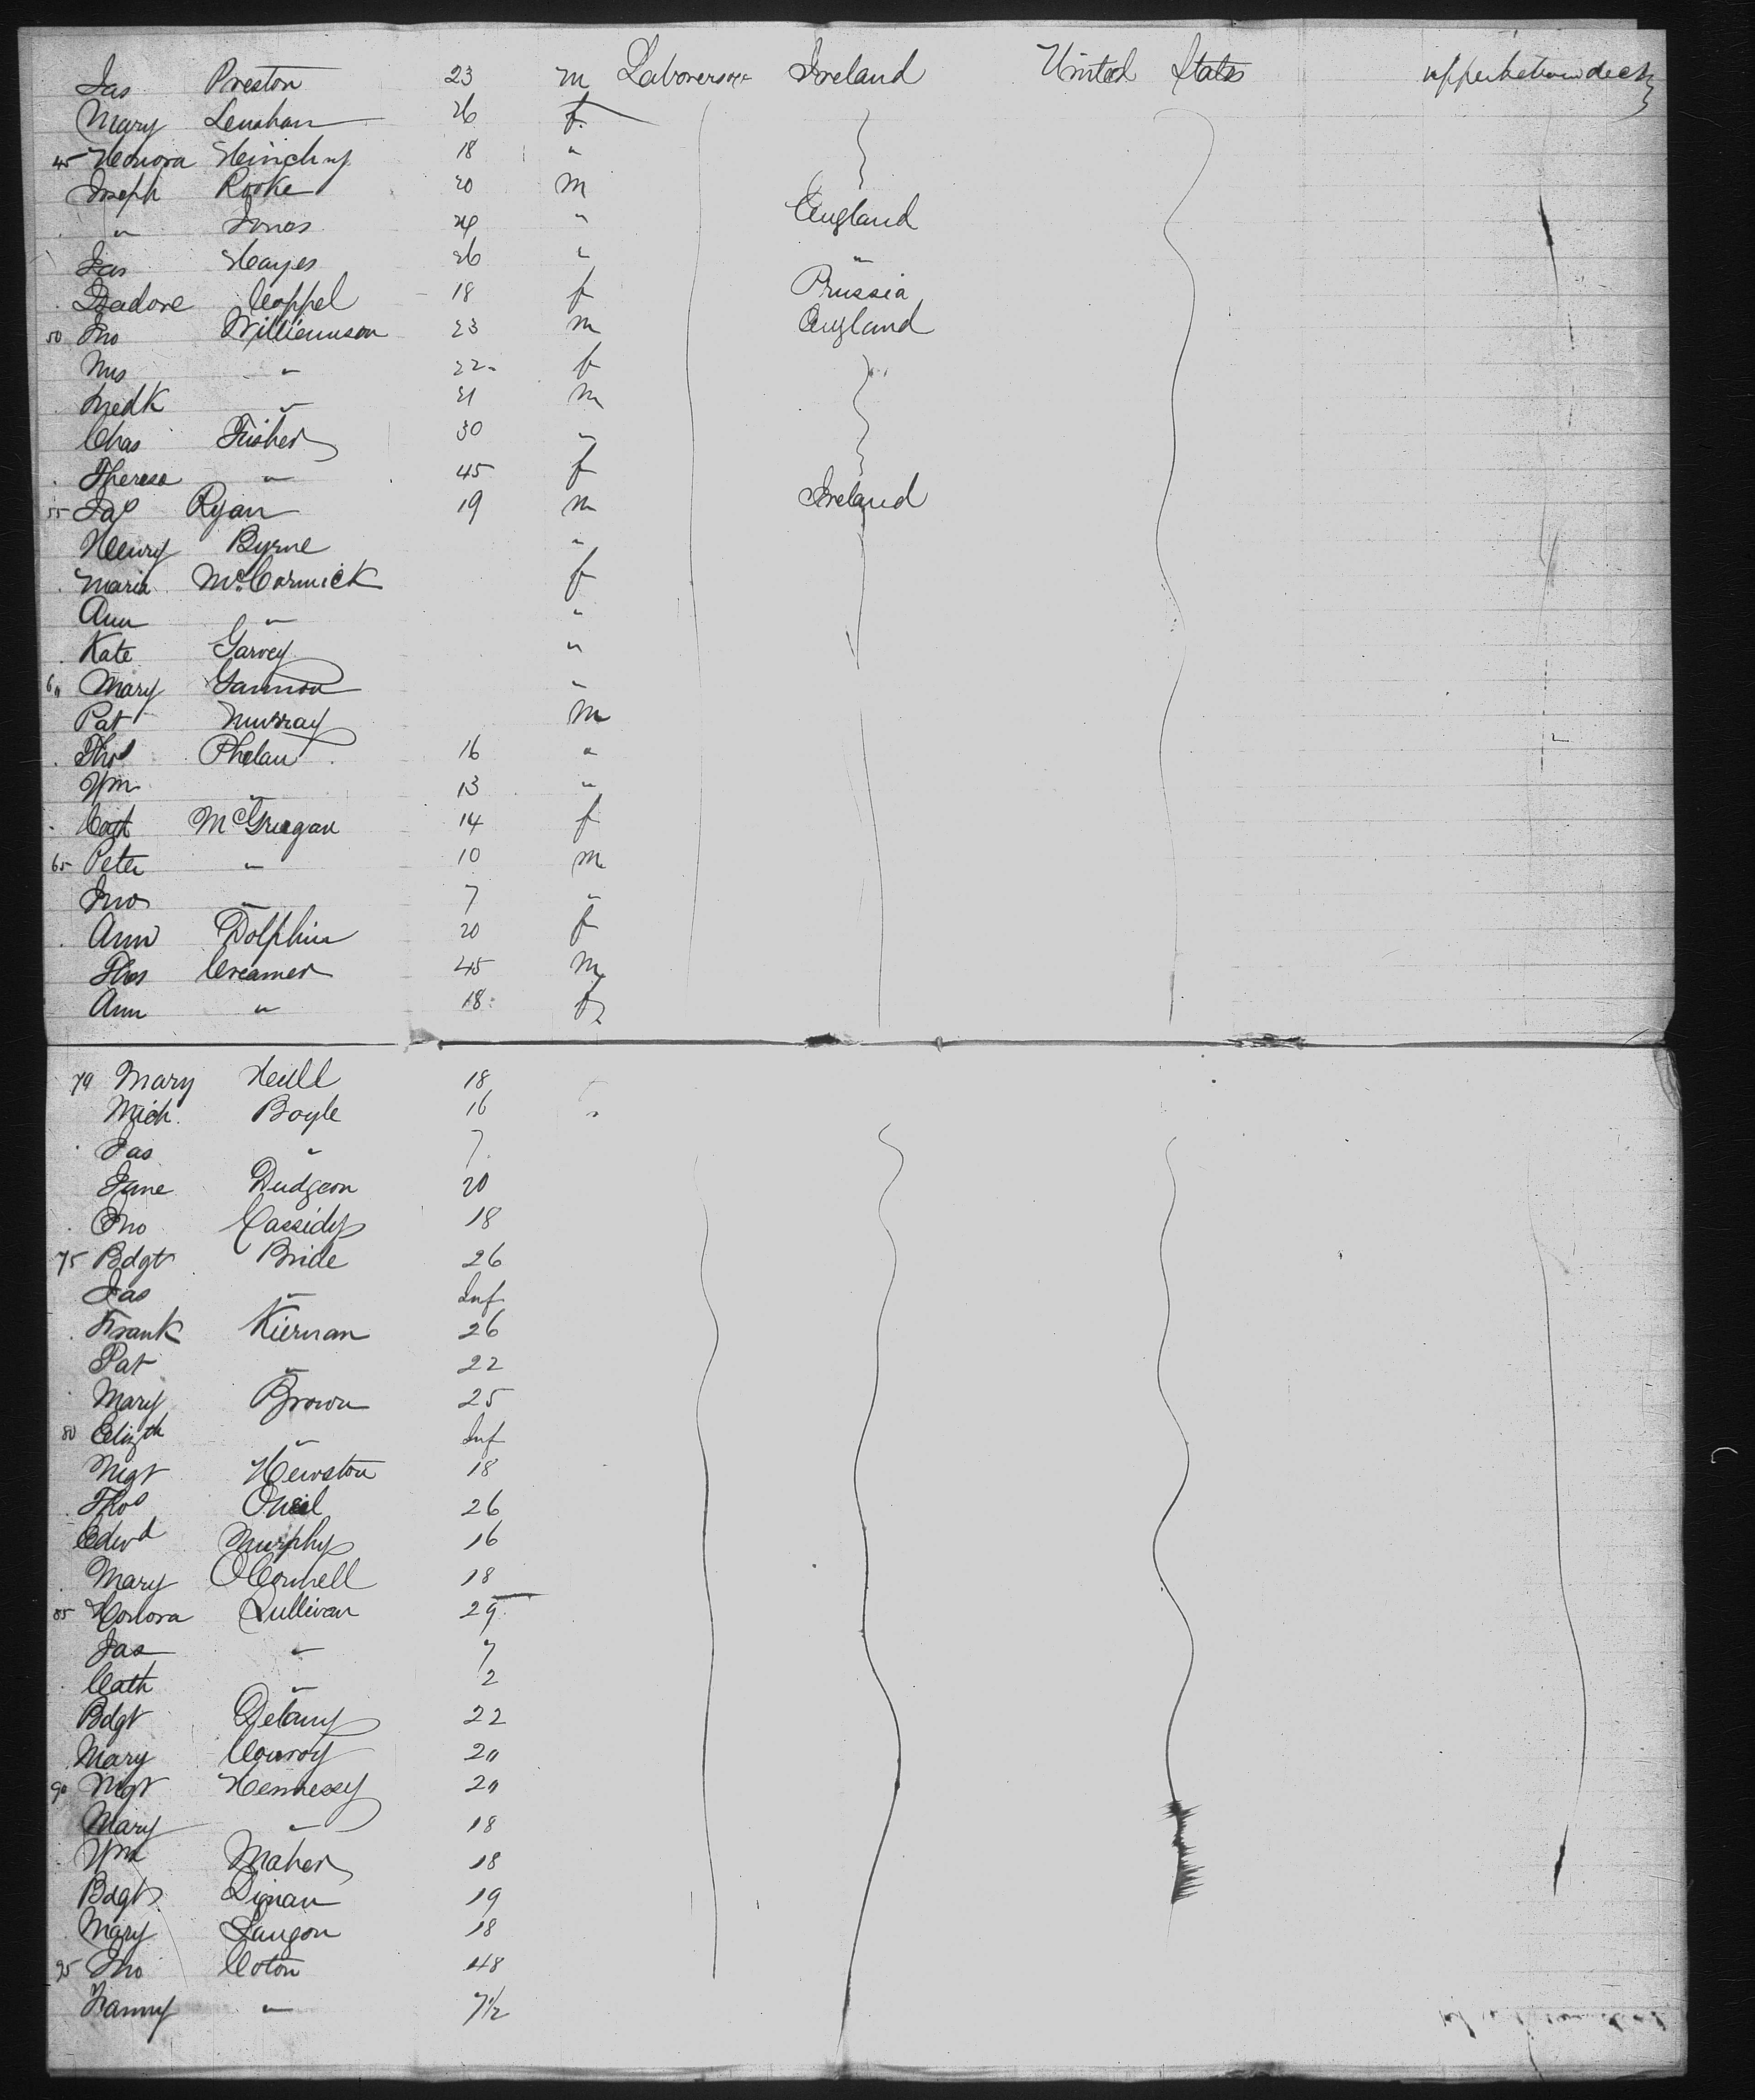 Jas Preston 23 m Laborers Ireland United States upper between decks
Mary Lenahan 26 f
45 Honora Hinchy 18 "
Joseph Rooke 20 m
" Jones 24 " England
Jas Hayes 26 " "
Isadore Coppel 18 f Prussia
50 Jno Williamson 23 m England
Mrs " 22 f
Fredk " 21 m
Chas Fisher 30 "
Theresa " 45 f
55 Jas Ryan 19 m Ireland
Henry Byrne "
Maria McCormick f
Ann " "
Kate Garvey "
60 Mary Gannon "
Pat Murray m
Thos Phelan 16 "
Wm " 13 "
Cath McGreegan 14 f
65 Peter " 10 m
Jno " 7 "
Ann Dolphin 20 f
Thos Creamer 45 m
Ann " 18 f
70 Mary Neill 18
Mich Boyle 16
Jas " 7
Jane Dudgeon 20
Jno Cassidy 18
75 Bdgt Bride 26
Jas " Inf
Frank Kiernan 26
Pat " 22
Mary Brown 25
80 Elizth " Inf
Mgt Hewston 18
Thos Oneil 26
Edwd Murphy 16
Mary OConnell 18
85 Honora Sullivan 29
Jas " 7
Cath " 2
Bdgt Delany 22
Mary Conroy 20
90 Mgt Hennessy 20
Mary " 18
Wm Maher 18
Bdgt Dignan 19
Mary Langon 18
95 Jno Coton 48
Fanny " 7½